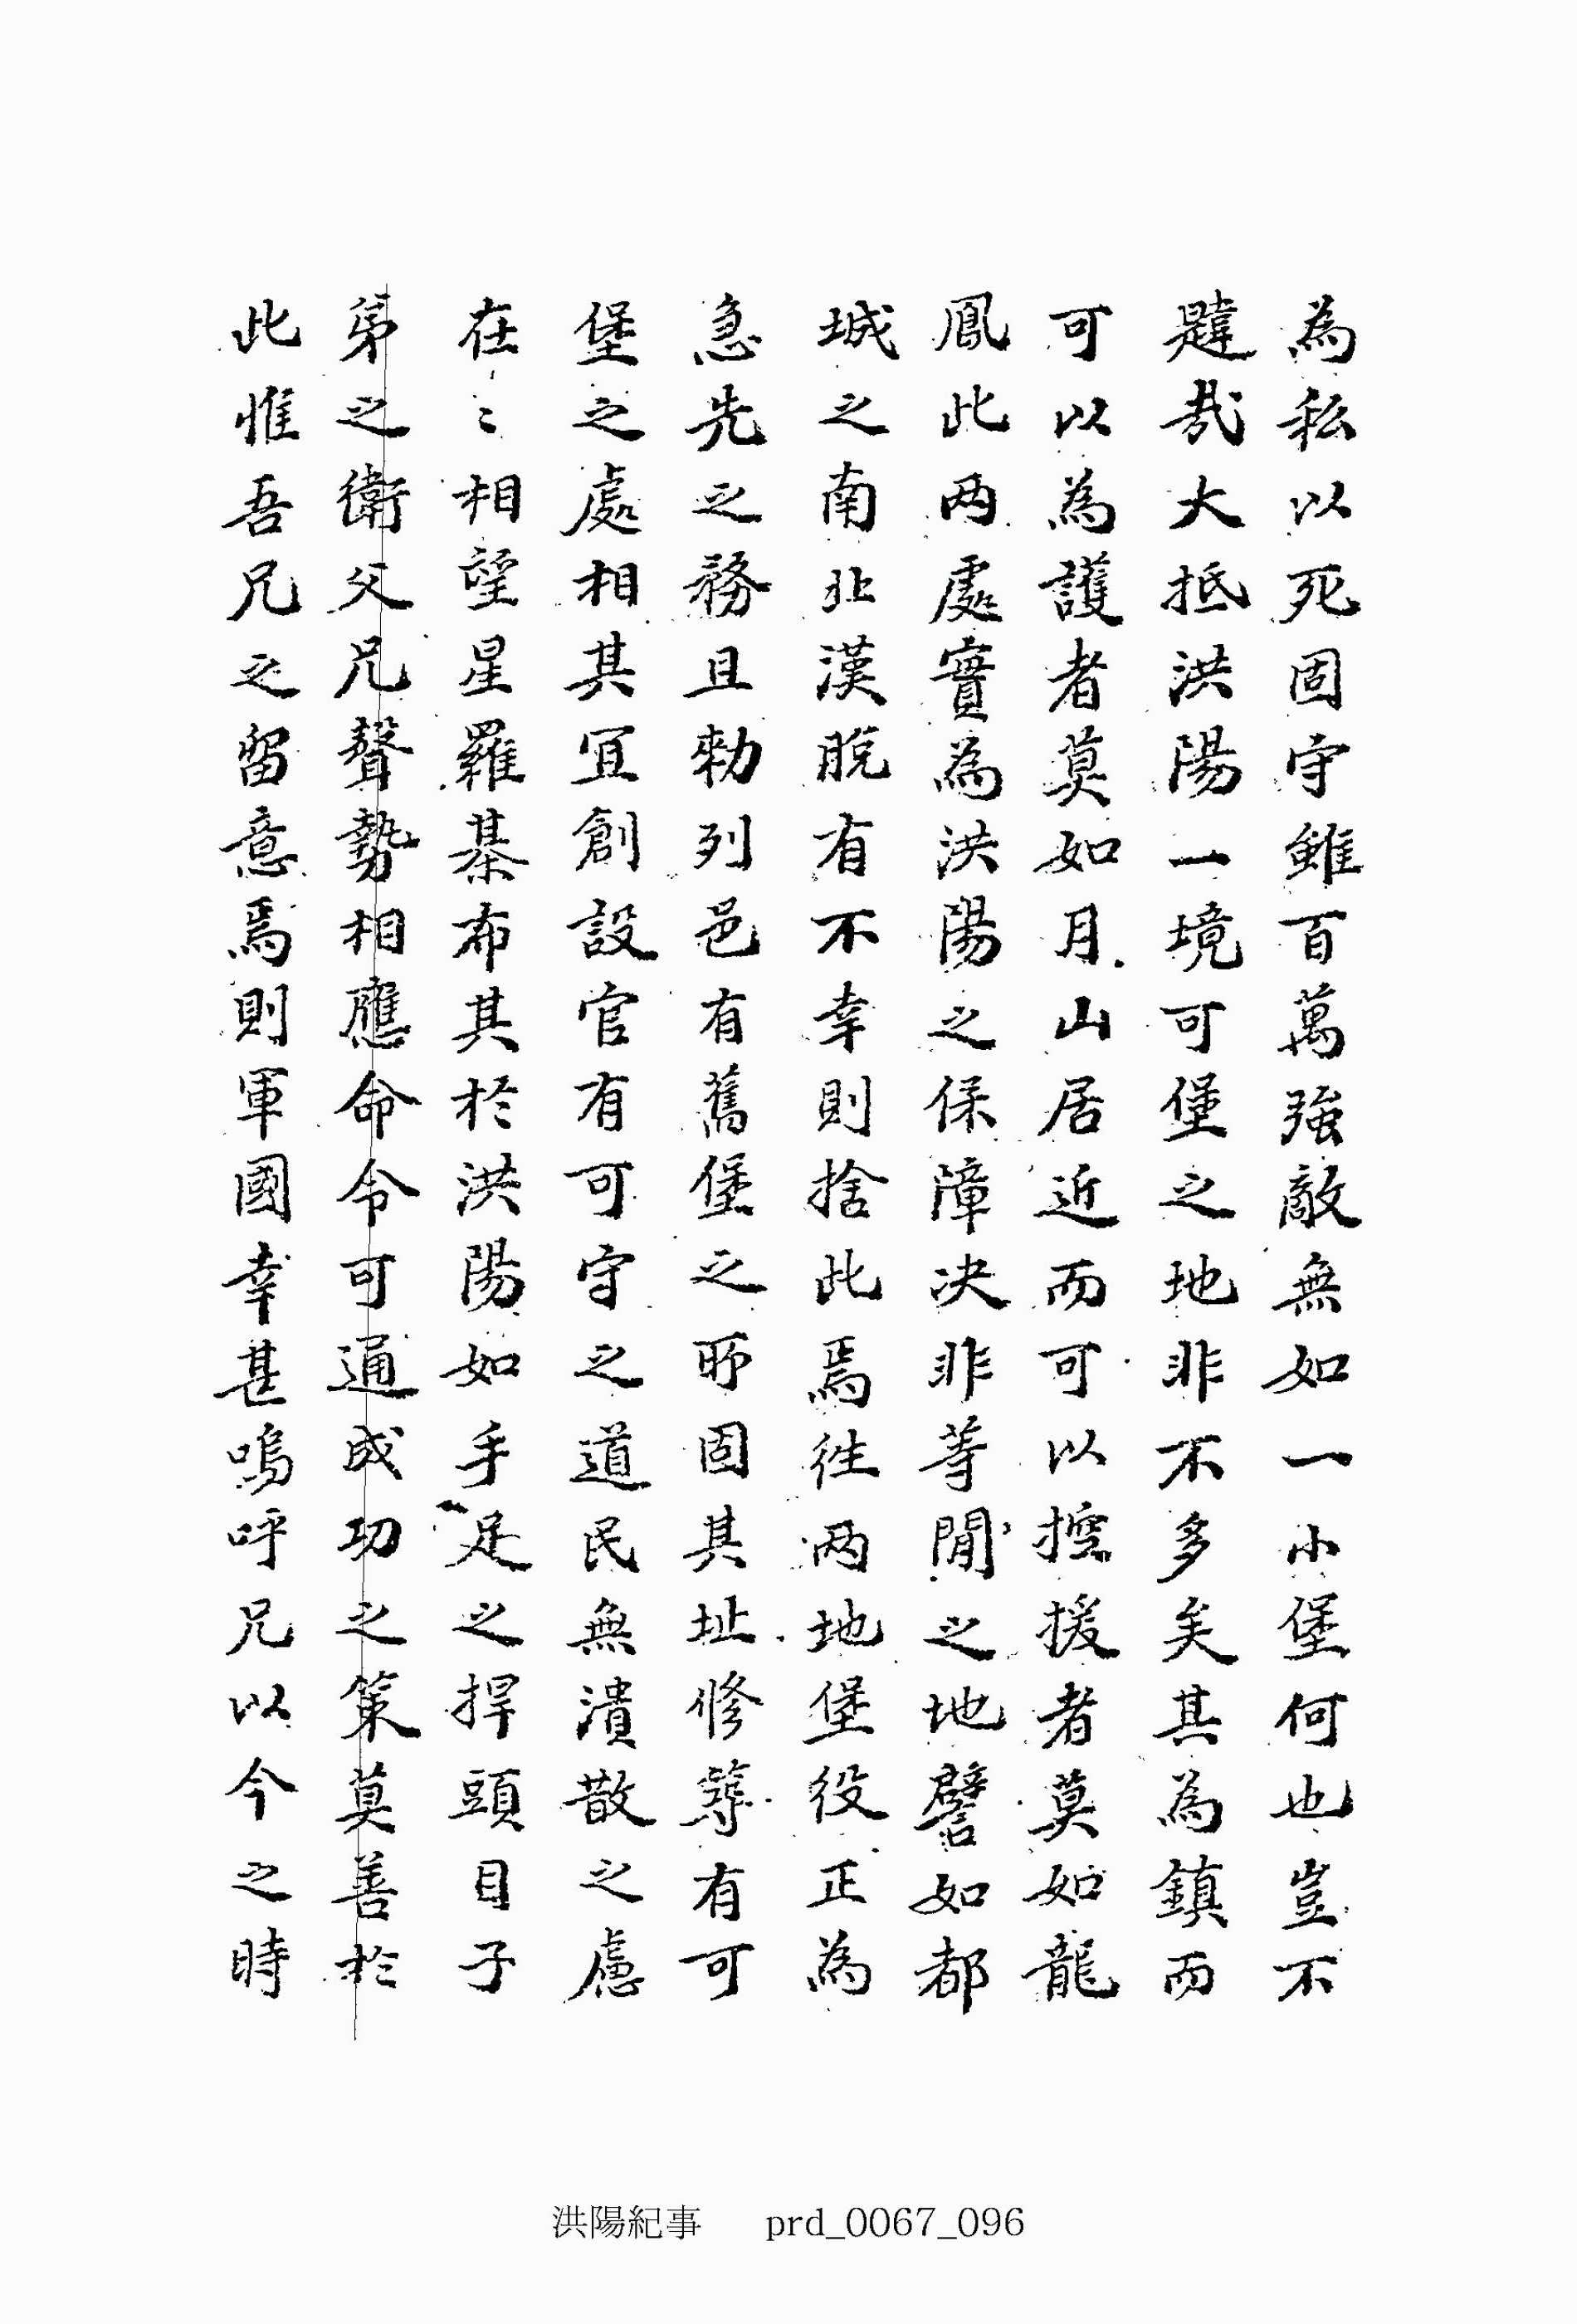 為私以死固守雖百萬強敵無如一小堡何也豈不
韙哉大抵洪陽一境可堡之地非不多矣其為鎮而
可以為護者莫如月山居近而可以控援者莫如龍
鳳此両處實為洪陽之保障决非等閒之地譬如都
城之南北漢脫有不幸則捨此焉徃両地堡役正為
急先之務且勅列邑有舊堡之所固其址修葺有可
堡之處相其宜創設官有可守之道民無潰散之慮
在〻相望星羅棊布其於洪陽如手足之捍頭目子
弟之衛父兄聲勢相應命令可通成功之策莫善於
此惟吾兄之留意焉則軍國幸甚嗚呼兄以今之時
洪陽紀事 prd_0067_096